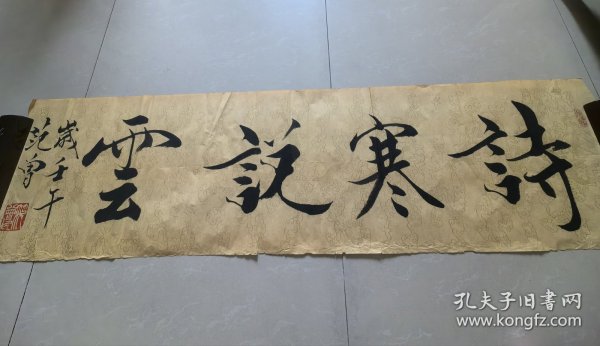 詩寒説雲
歲壬午
范曾
孔夫子旧书网
www.kongfz.com